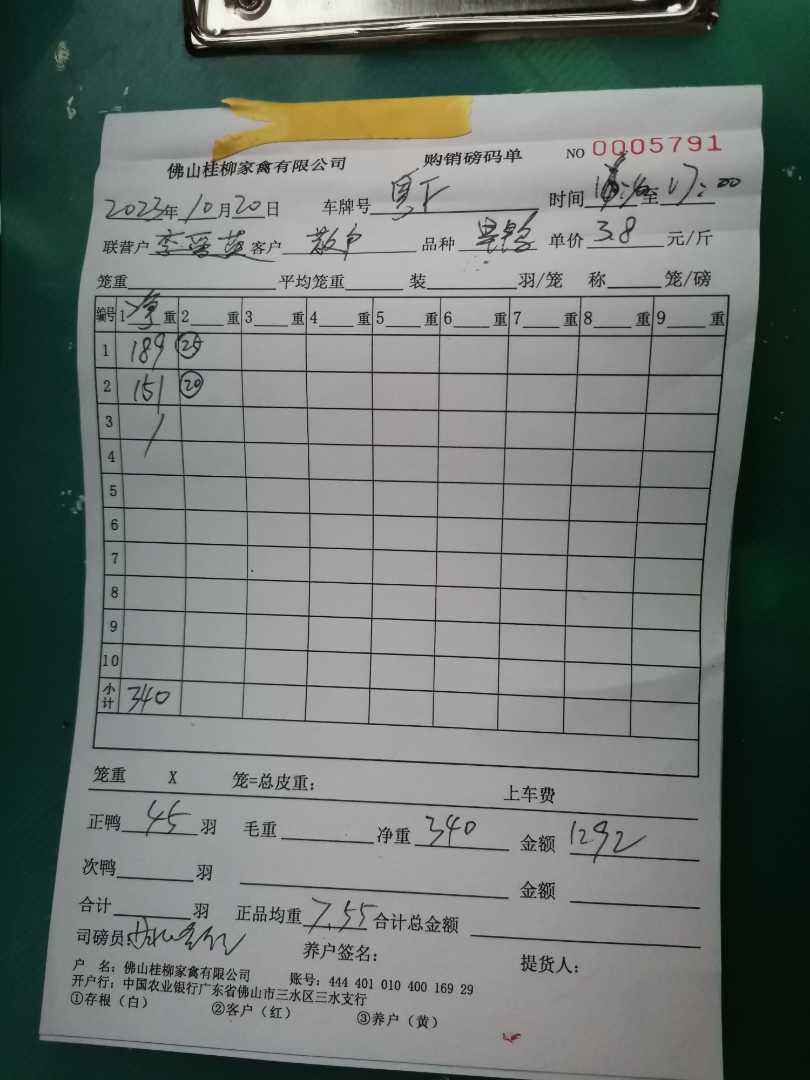 佛山桂柳家禽有限公司 购销磅码单 NO 0005791
2023年10月20日 车牌号 时间 至17:00
联营户 李 英 客户 散户 品种 单价 3.8 元/斤
笼重 平均笼重 装 羽/笼 称 笼/磅
编号 1 净 重 2 重 3 重 4 重 5 重 6 重 7 重 8 重 9 重
1 189 25
2 151 20
3 /
4
5
6
7
8
9
10
小计 340
笼重 X 笼=总皮重: 上车费
正鸭 45 羽 毛重 净重 340 金额 1292
次鸭 羽 金额
合计 羽 正品均重 7.55 合计总金额
司磅员: 养户签名: 提货人:
户 名: 佛山桂柳家禽有限公司 账号: 444 401 010 400 169 29
开户行: 中国农业银行广东省佛山市三水区三水支行
①存根(白) ②客户(红) ③养户(黄)